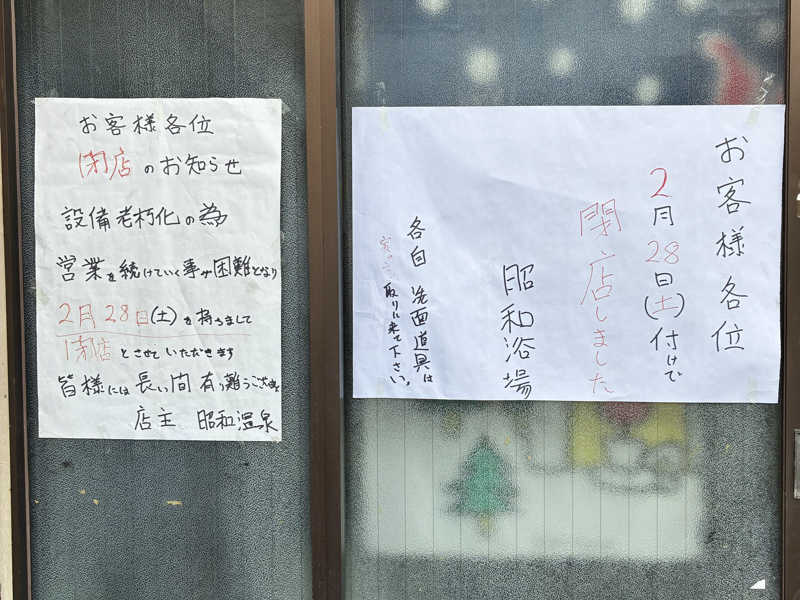 お客様各位
閉店のお知らせ
設備老朽化の為
営業を続けていく事が困難となり
2月28日(土)を持ちまして
閉店とさせていただきます
皆様には長い間有難うございます
店主 昭和温泉
お客様各位
2月28日(土)付けで
閉店しました
昭和浴場
各自洗面道具は
取りに来て下さい。